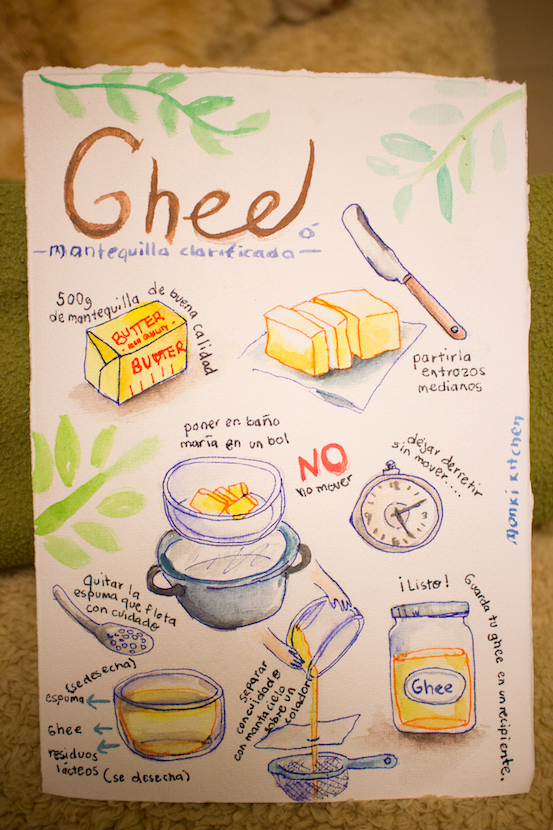 Ghee
ó
-mantequilla clarificada-
500g
de mantequilla de buena calidad
BUTTER
BUTTER
partirla
en trozos
medianos
poner en baño
maría en un bol
NO
no mover
dejar derretir
sin mover....
Monki Kitchen
quitar la
espuma que flota
con cuidado
(se desecha)
espuma
Ghee
residuos
lácteos (se desecha)
separar
con cuidado
con manta cielo
sobre un
colador
¡Listo!
Guarda tu ghee en un recipiente.
Ghee